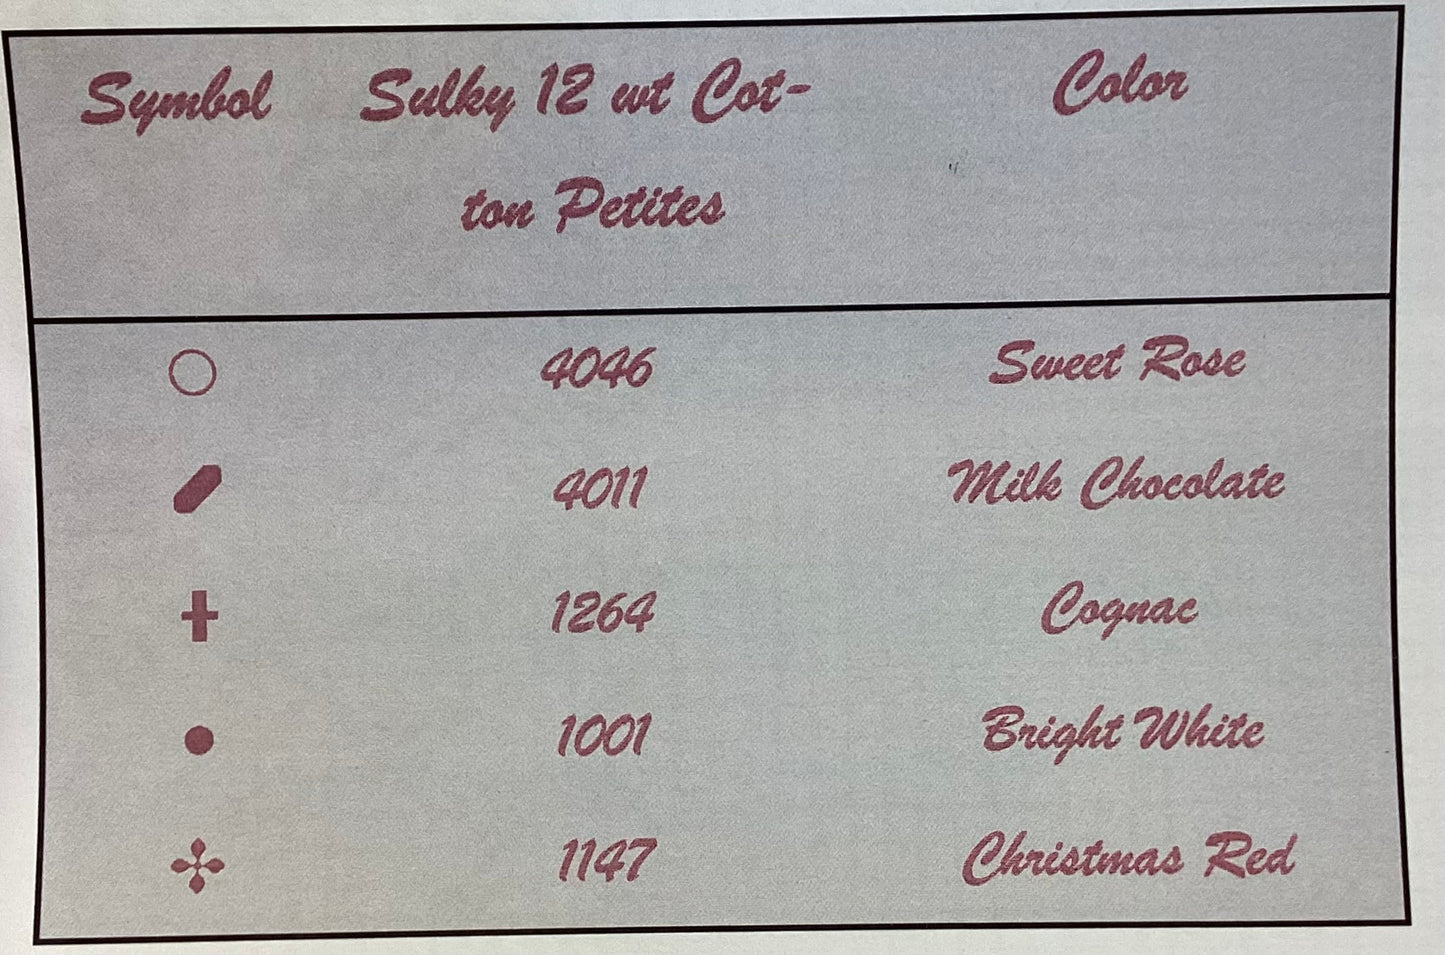 Symbol Sulky 12 wt Cot- Color
ton Petites
4046 Sweet Rose
4011 Milk Chocolate
1264 Cognac
1001 Bright White
1147 Christmas Red